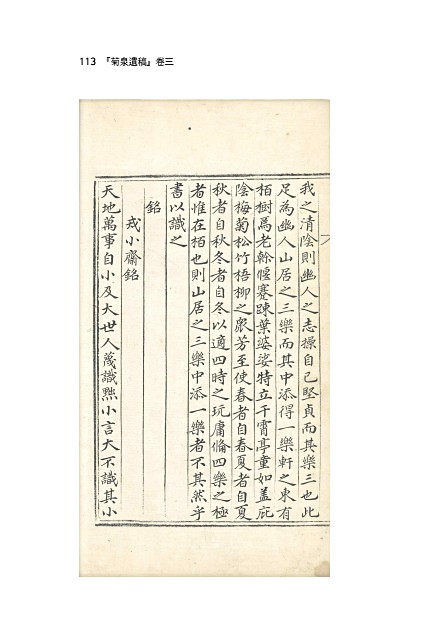 113 『菊泉遺稿』卷三
我之清陰則幽人之志操自己堅貞而其樂三也此
足爲幽人山居之三樂而其中添得一樂軒之東有
栢樹爲老幹偃蹇踈葉婆娑特立干霄亭童如盖庇
陰梅菊松竹梧柳之衆芳至使春者自春夏者自夏
秋者自秋冬者自冬以適四時之玩庸備四樂之極
者惟在栢也則山居之三樂中添一樂者不其然乎
書以識之
銘
戎小齋銘
天地萬事自小及大世人蔑識㸃小言大不識其小